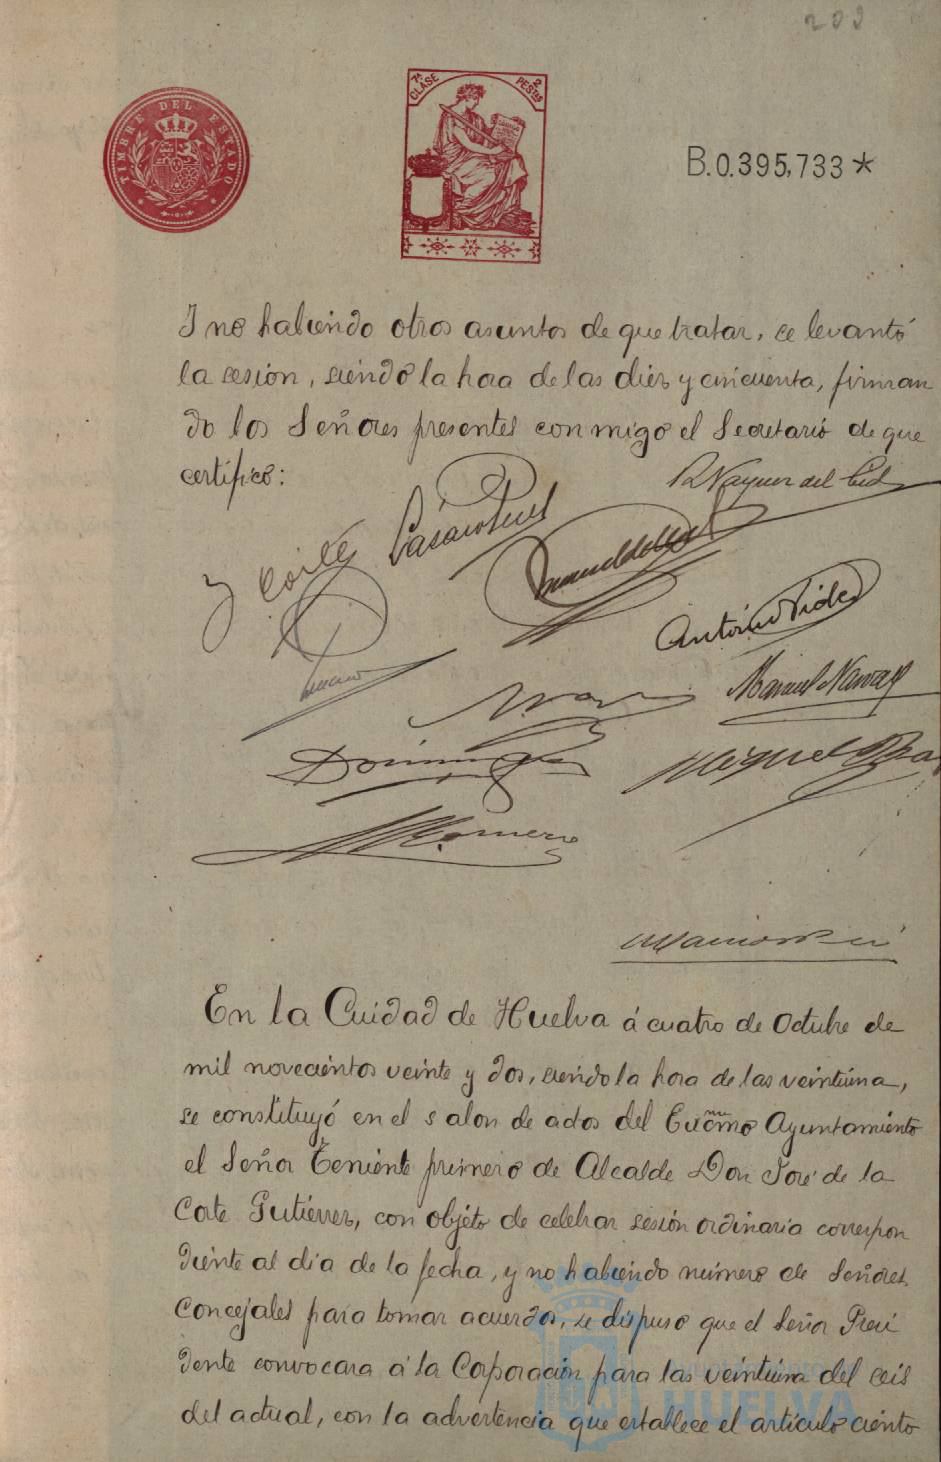 209
TIMBRE DEL ESTADO
7ª CLASE 2 PESTAS
B.0.395,733*
Y no habiendo otros asuntos de que tratar, se levantó
la sesion, siendo la hora de las diez y cincuenta, firman
do los Señores presentes conmigo el Secretario de que
certifico:
Antonio Vides
Manuel Navarro
Dominguez
Miguel
Romero
En la Cuidad de Huelva á cuatro de Octubre de
mil novecientos veinte y dos, siendo la hora de las veintiuna,
se constituyó en el salon de actos del Excmo Ayuntamiento
el Señor Teniente primero de Alcalde Don José de la
Corte Gutierrez, con objeto de celebrar sesión ordinaria correspon
diente al dia de la fecha, y no habiendo número de Señores
Concejales para tomar acuerdos, se dispuso que el Señor Presi
dente convocara á la Corporación para las veintiuna del seis
del actual, con la advertencia que establece el artículo ciento
Ayuntamiento de
HUELVA